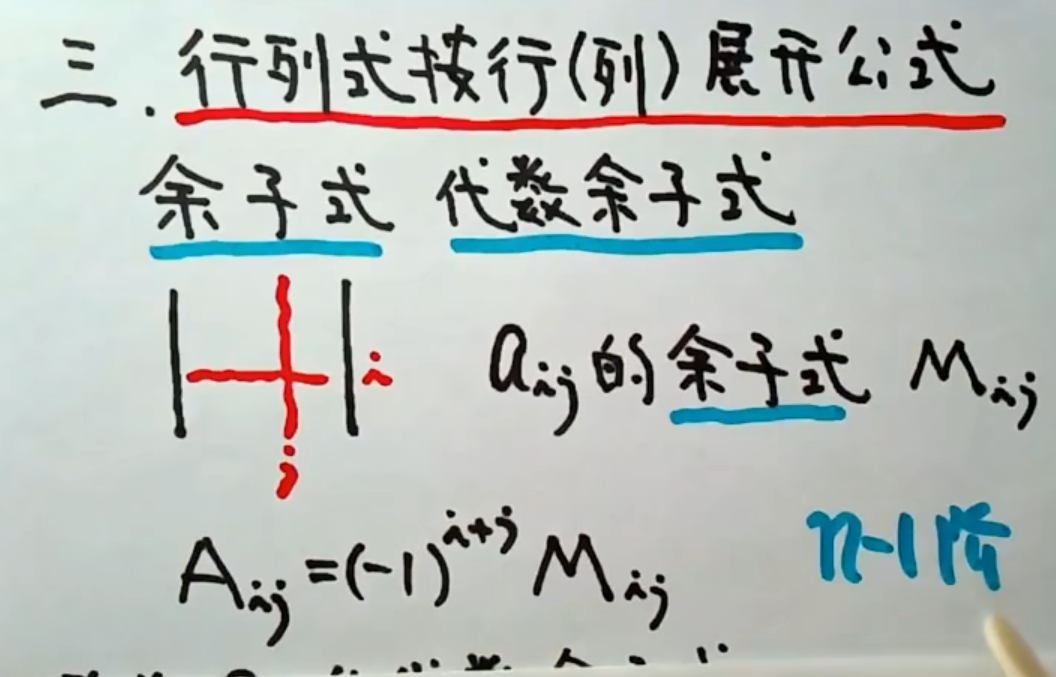 三.行列式按行(列)展开公式
余子式 代数余子式
i
aij的余子式 Mij
j
n-1阶
Aij=(-1)^{i+j} Mij